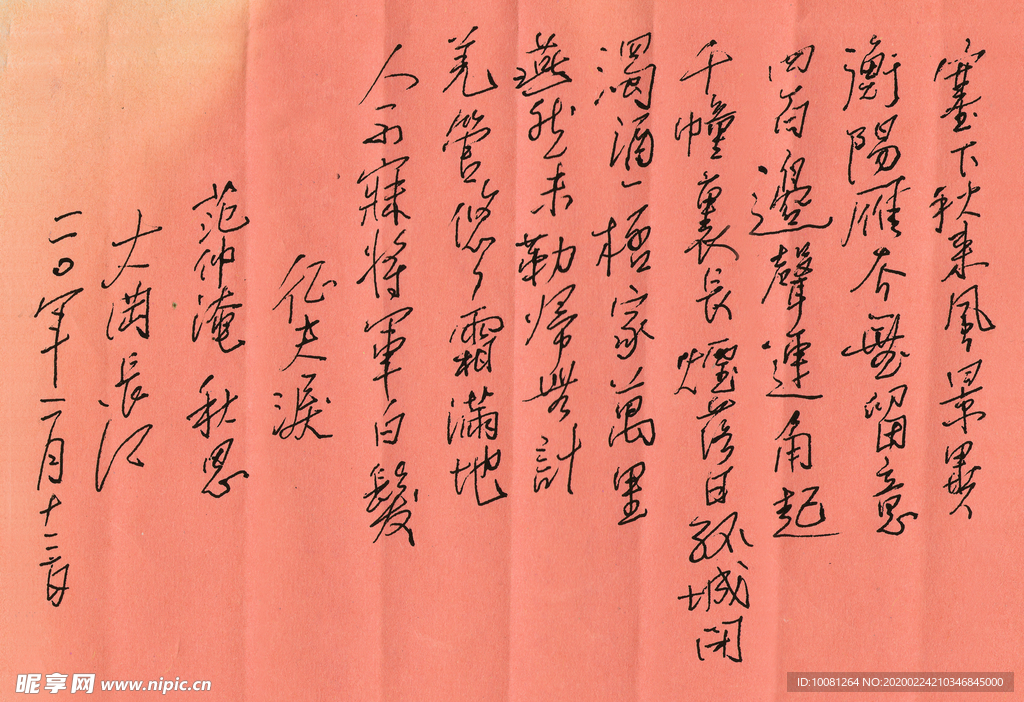 塞下秋來風景異
衡陽雁去無留意
四面邊聲連角起
千幛裏長煙落日孤城閉
濁酒一桮家萬里
燕然未勒歸無計
羌管悠々霜滿地
人不寐將軍白髮
征夫淚
范仲淹 秋思
大 長江
二〇年 月十二日
昵享网 www.nipic.cn
ID:10081264 NO:20200224210346845000